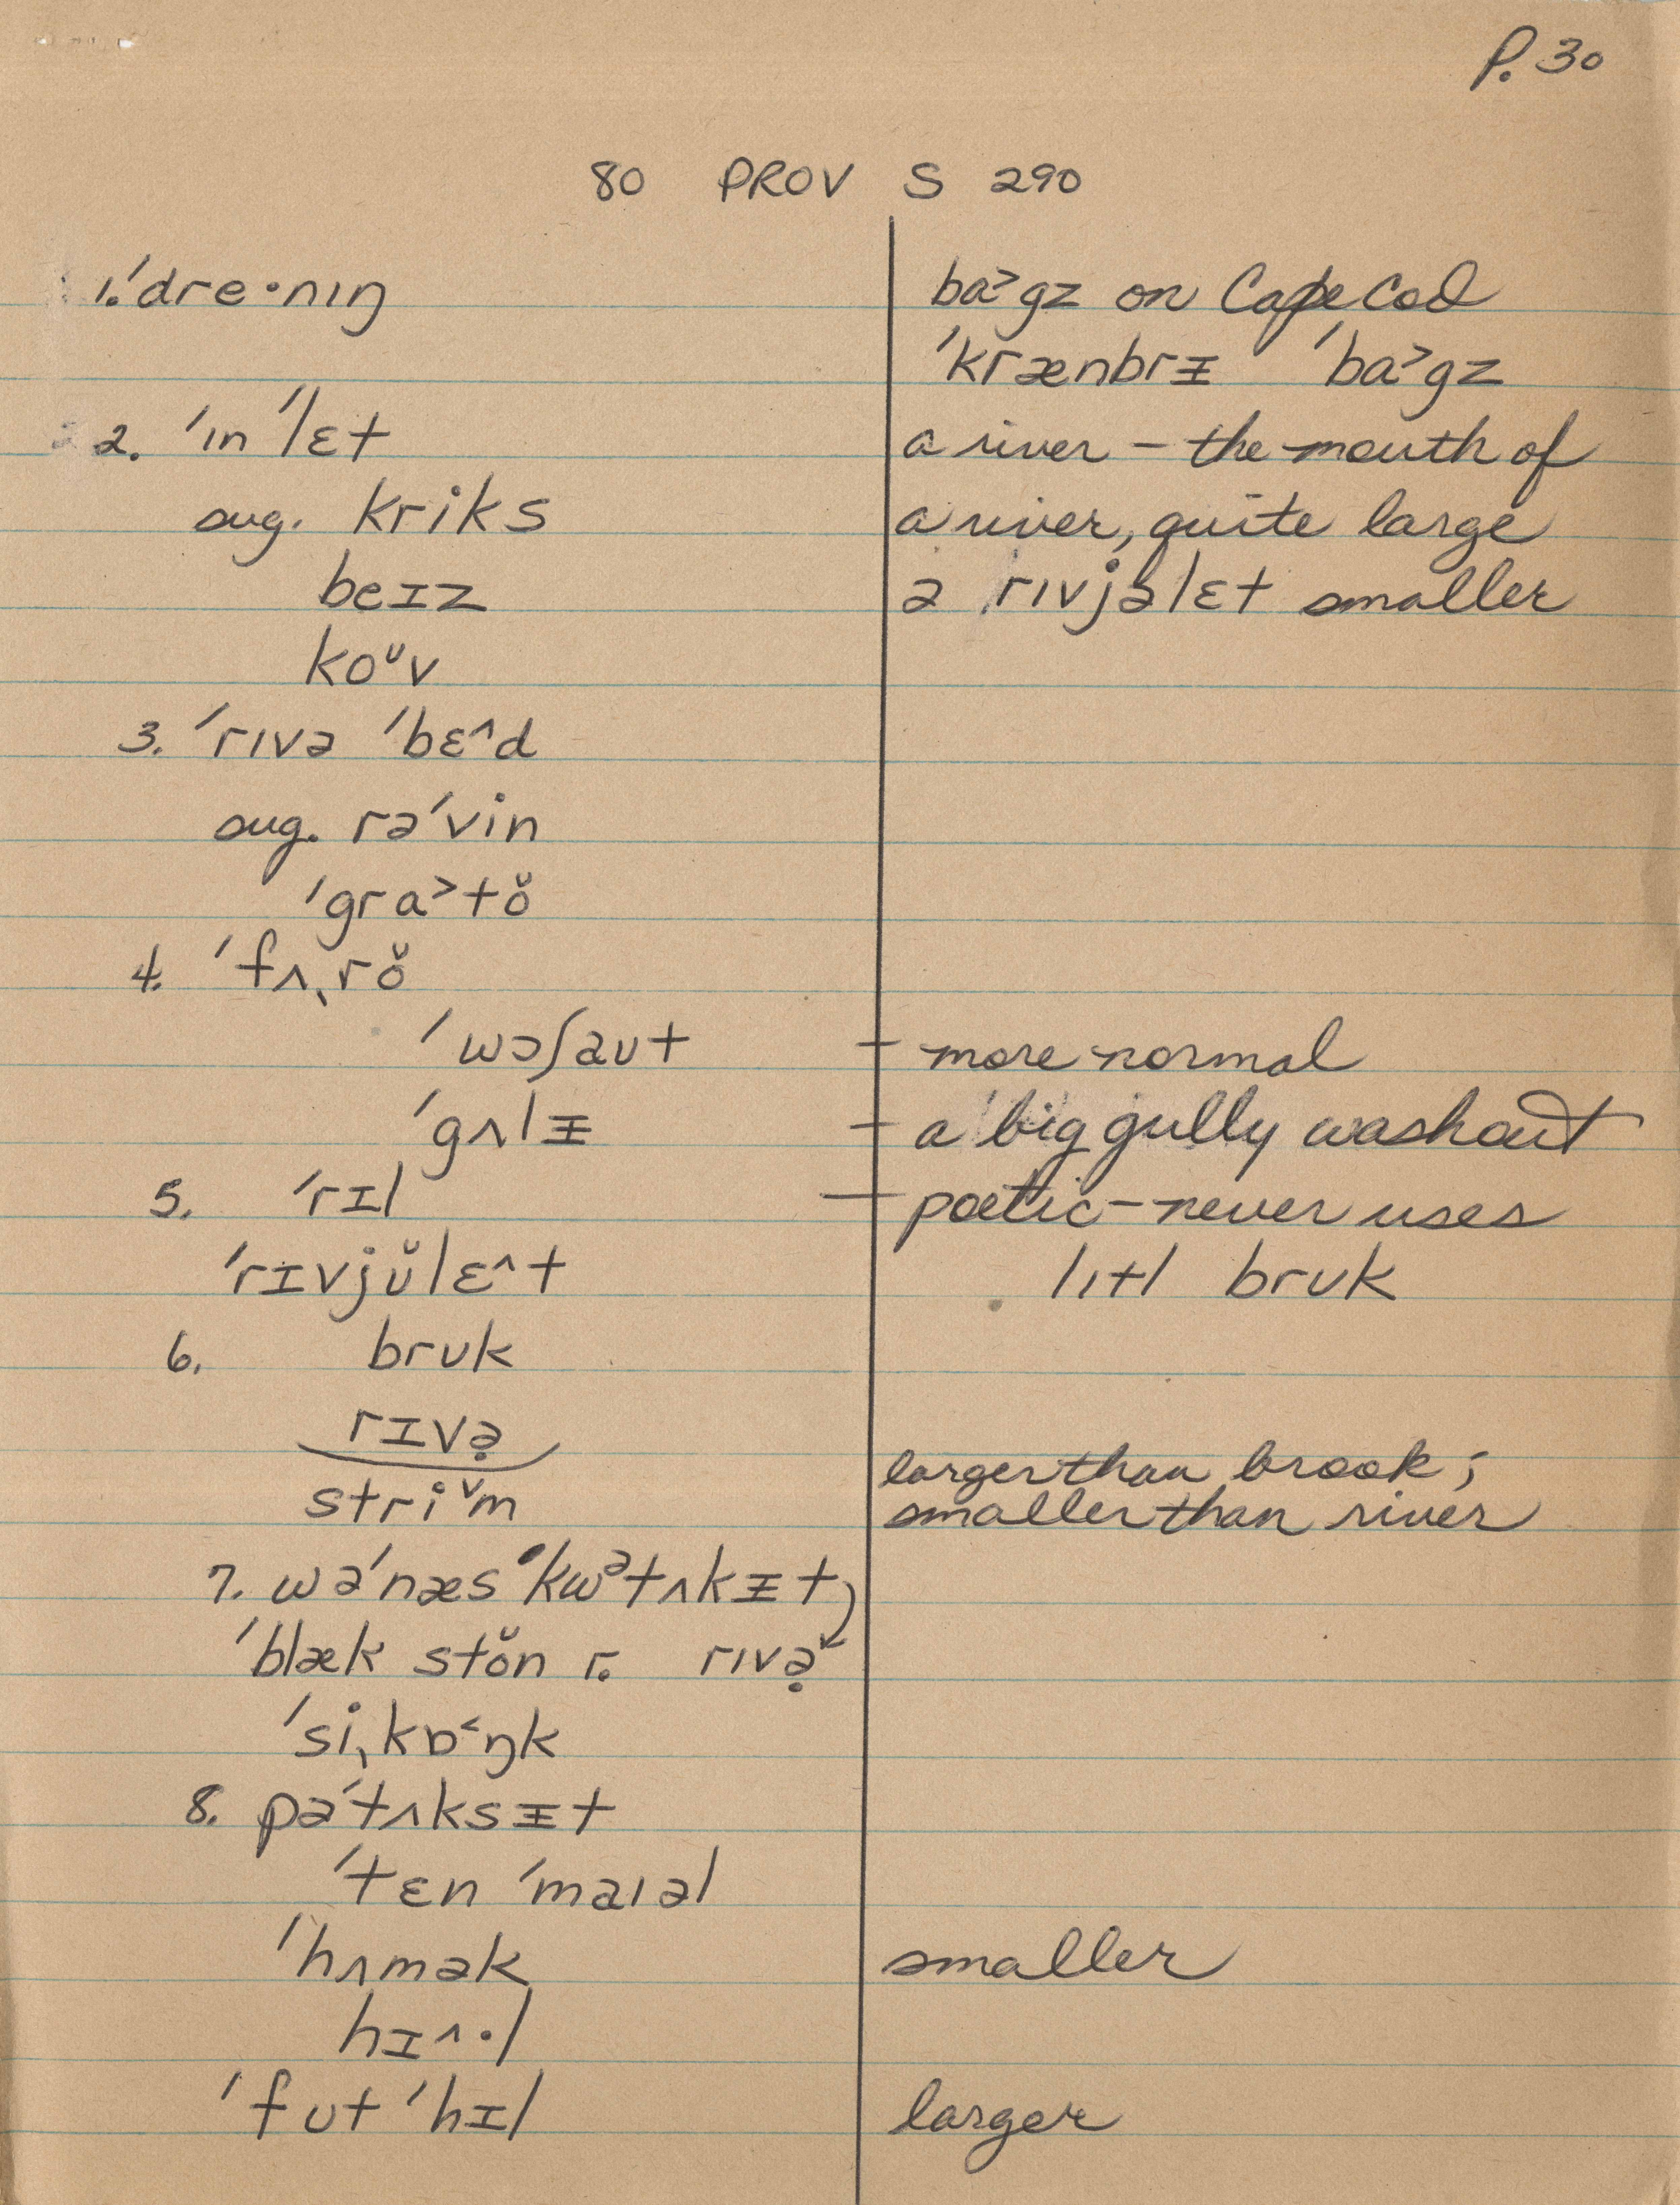 P. 30
80 PROV S 290
1. ˈdre·nɪŋ
ba˃gz on Cape Cod
ˈkrænbrᵻ ˈba˃gz
2. ˈɪn ˈˈlɛt
a river – the mouth of
sug. kriks
a river, quite large
beɪz
ə rɪvjəlɛt smaller
koᶷv
3. ˈrɪvə ˈbɛ^d
sug. rəˈvin
ˈgra˃tŏ
4. ˈfʌˌrŏ
ˈwɔʃaʊt – more normal
ˈgʌlᵻ – a big gully washout
5. ˈrɪl – poetic – never uses
ˈrɪvjŭlɛ^t lɪtl brʊk
6. brʊk
rɪvə̣
larger than brook;
stri˅m
smaller than river
7. wəˈnæsˈkwᵊtʌkᵻt
ˈblæk stŏn r. rɪvə̣
ˈsiˌkɒ˂ŋk
8. pəˈtʌksᵻt
ˈtɛn ˈmaɪəl
ˈhʌmək smaller
hɪ^·l
ˈfʊt ˈhɪl larger